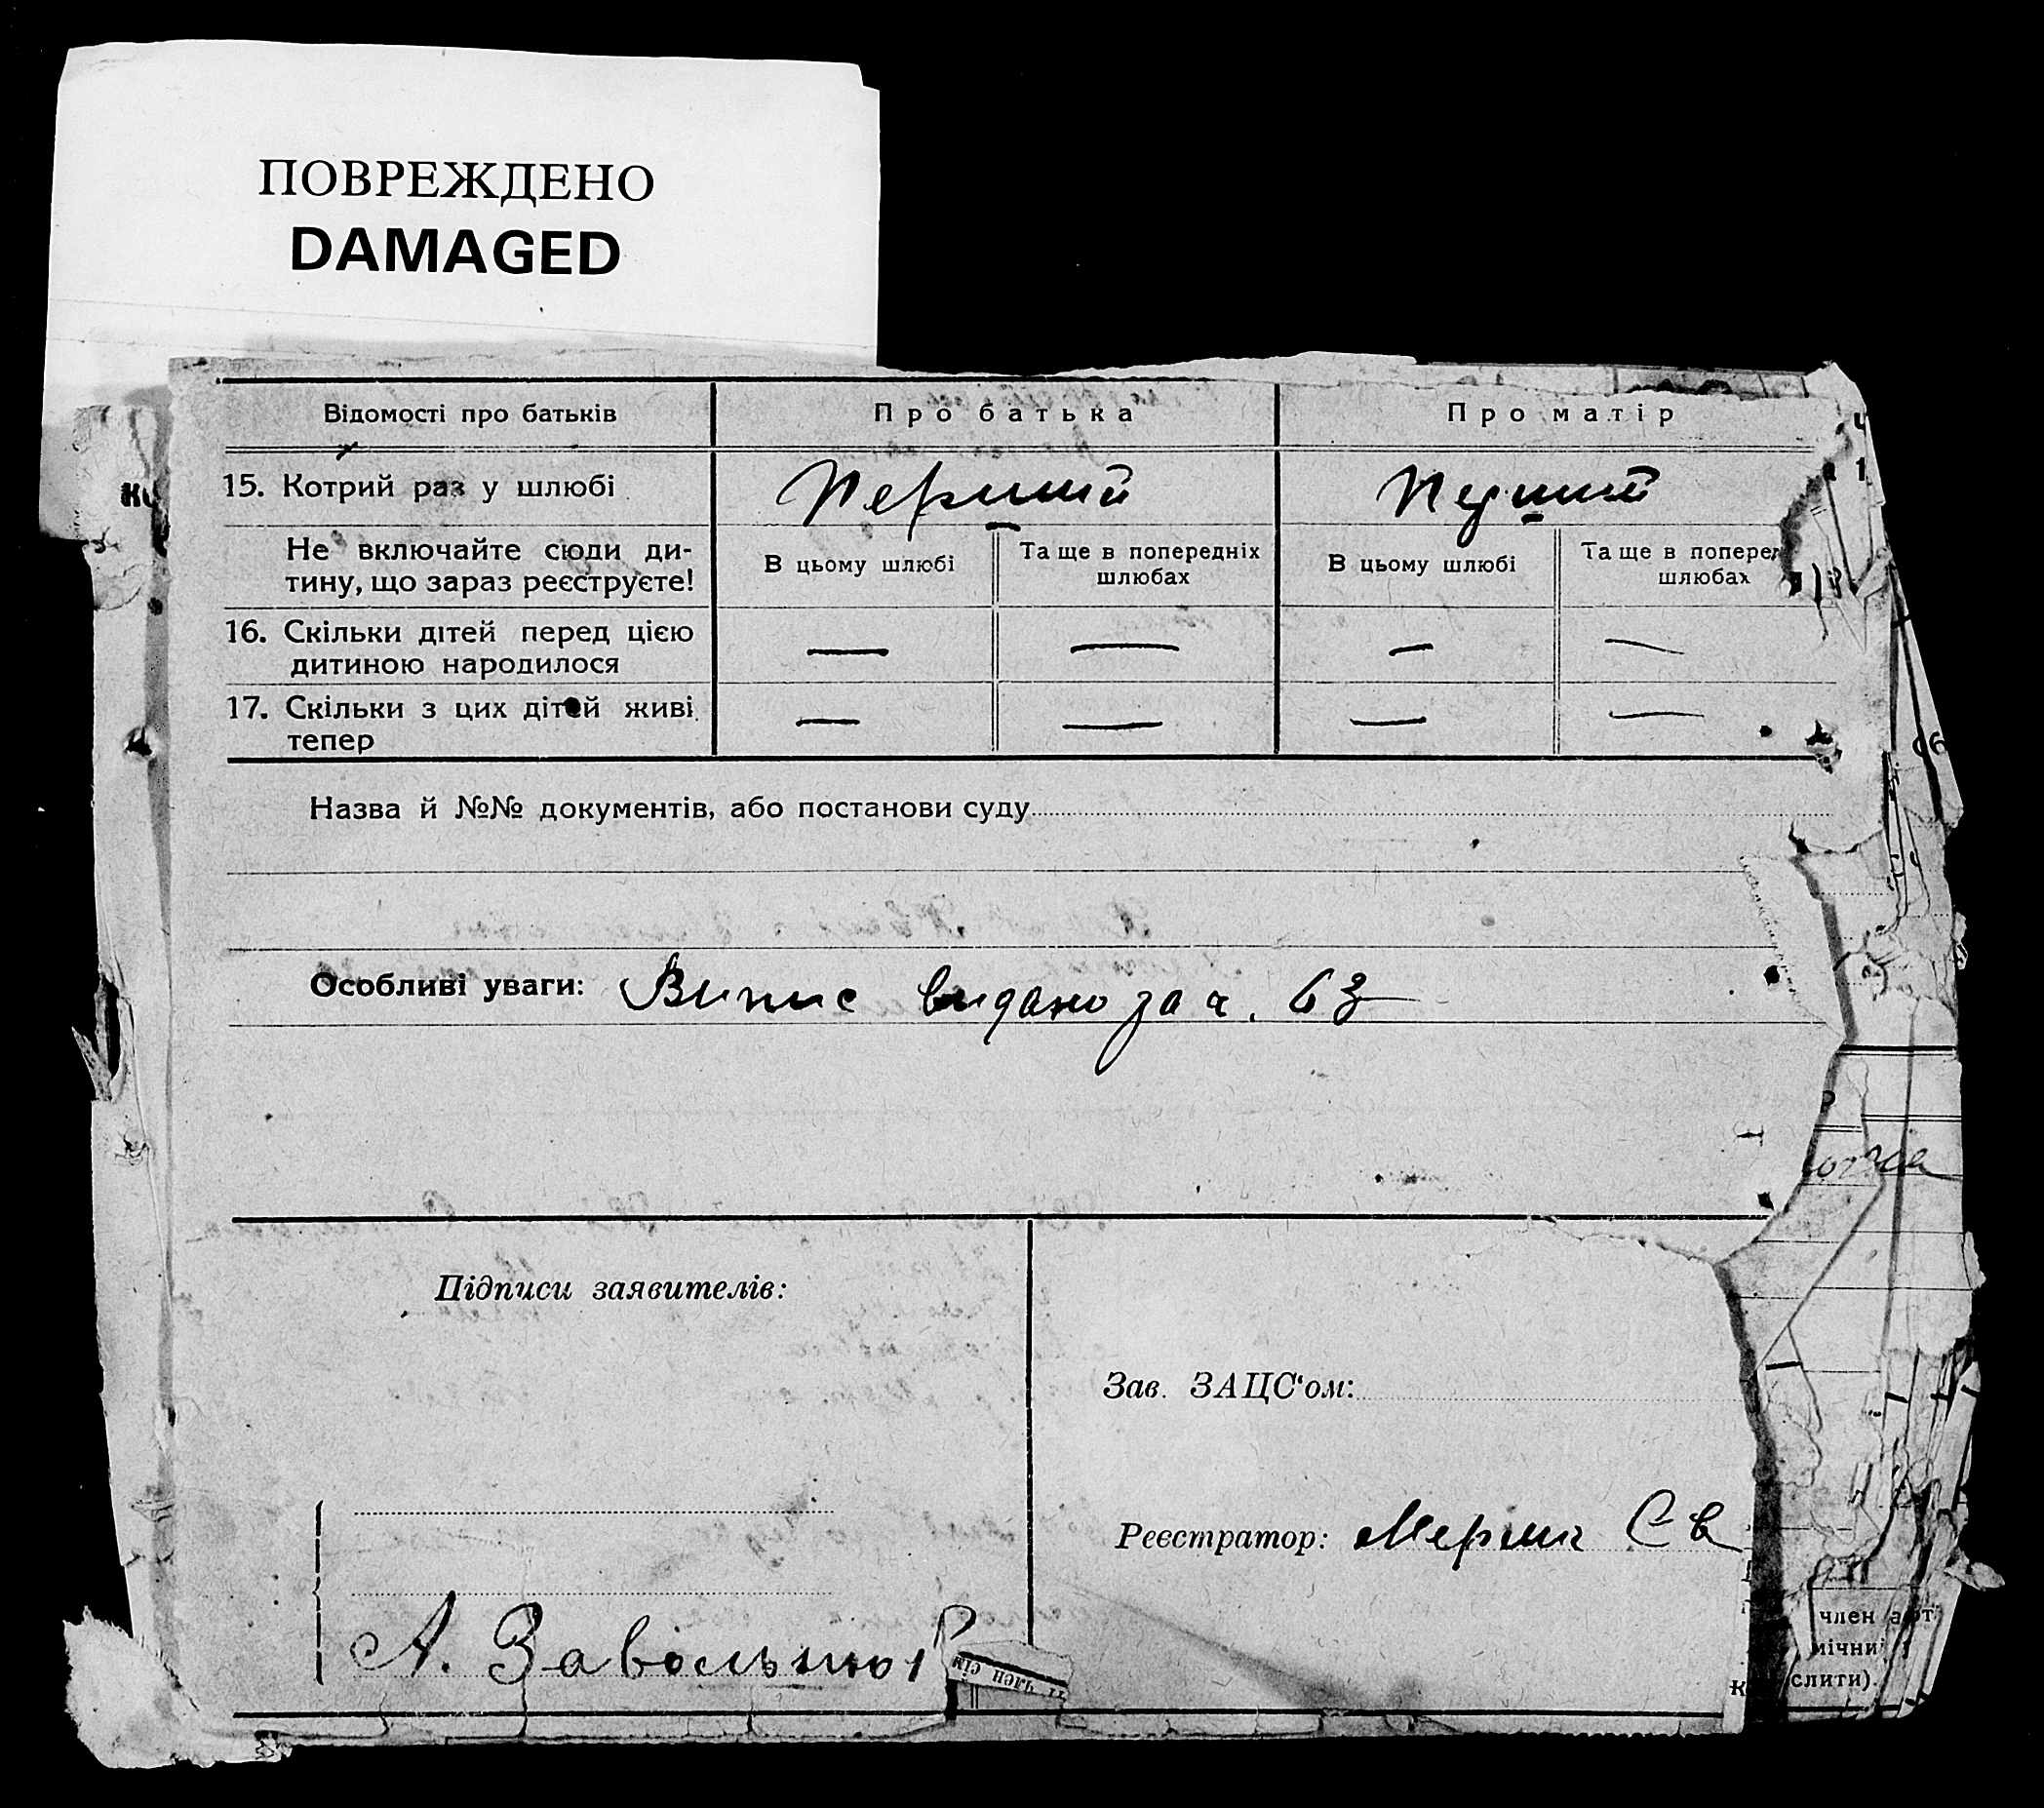 ПОВРЕЖДЕНО
DAMAGED
Відомості про батьків
Про батька
Про матір
15. Котрий раз у шлюбі
Перший
Перший
Не включайте сюди ди-
тину, що зараз реєструєте!
В цьому шлюбі
Та ще в попередніх
шлюбах
В цьому шлюбі
Та ще в поперед
шлюбах
16. Скільки дітей перед цією
дитиною народилося
—
—
—
—
17. Скільки з цих дітей живі
тепер
—
—
—
—
Назва й №№ документів, або постанови суду
Особливі уваги: Випис видано за ч. 63
Підписи заявителів:
Зав. ЗАЦС‘ом:
Реєстратор:
А.
член
мічни
слити).